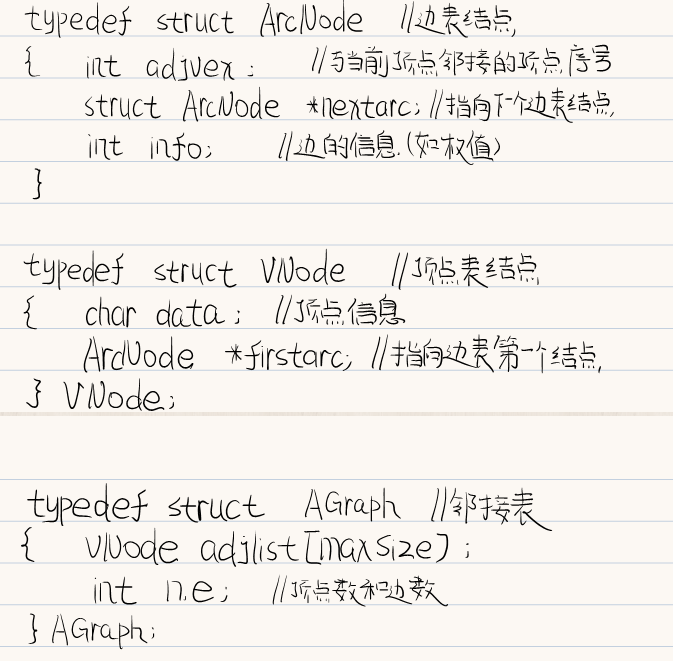 typedef struct ArcNode //边表结点
{ int adjvex; //与当前顶点邻接的顶点序号
struct ArcNode *nextarc; //指向下个边表结点
int info; //边的信息.(如权值)
}
typedef struct VNode //顶点表结点
{ char data; //顶点信息
ArcNode *firstarc; //指向边表第一个结点
} VNode;
typedef struct AGraph //邻接表
{ VNode adjlist[maxSize];
int n.e; //顶点数和边数
} AGraph;